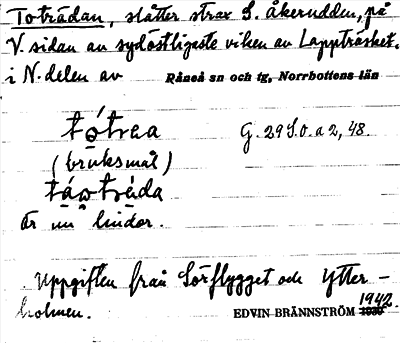 Toträdan, slåtter strax S. åkerudden, på
V. sidan av sydöstligaste viken av Lappträsket.
i N. delen av Råneå sn och tg, Norrbottens län
tótraa G. 29 S.o. a 2, 48.
(bruksmål)
táotráda
är nu lindor.
Uppgiften från Sörflygget och Ytter-
holmen. EDVIN BRÄNNSTRÖM 1942.